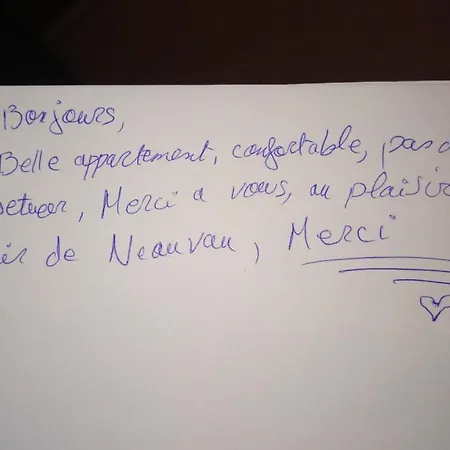 Bonjours,
Belle appartement, confortable, pas d
Merci a vous, au plaisir
de Neauvau, Merci